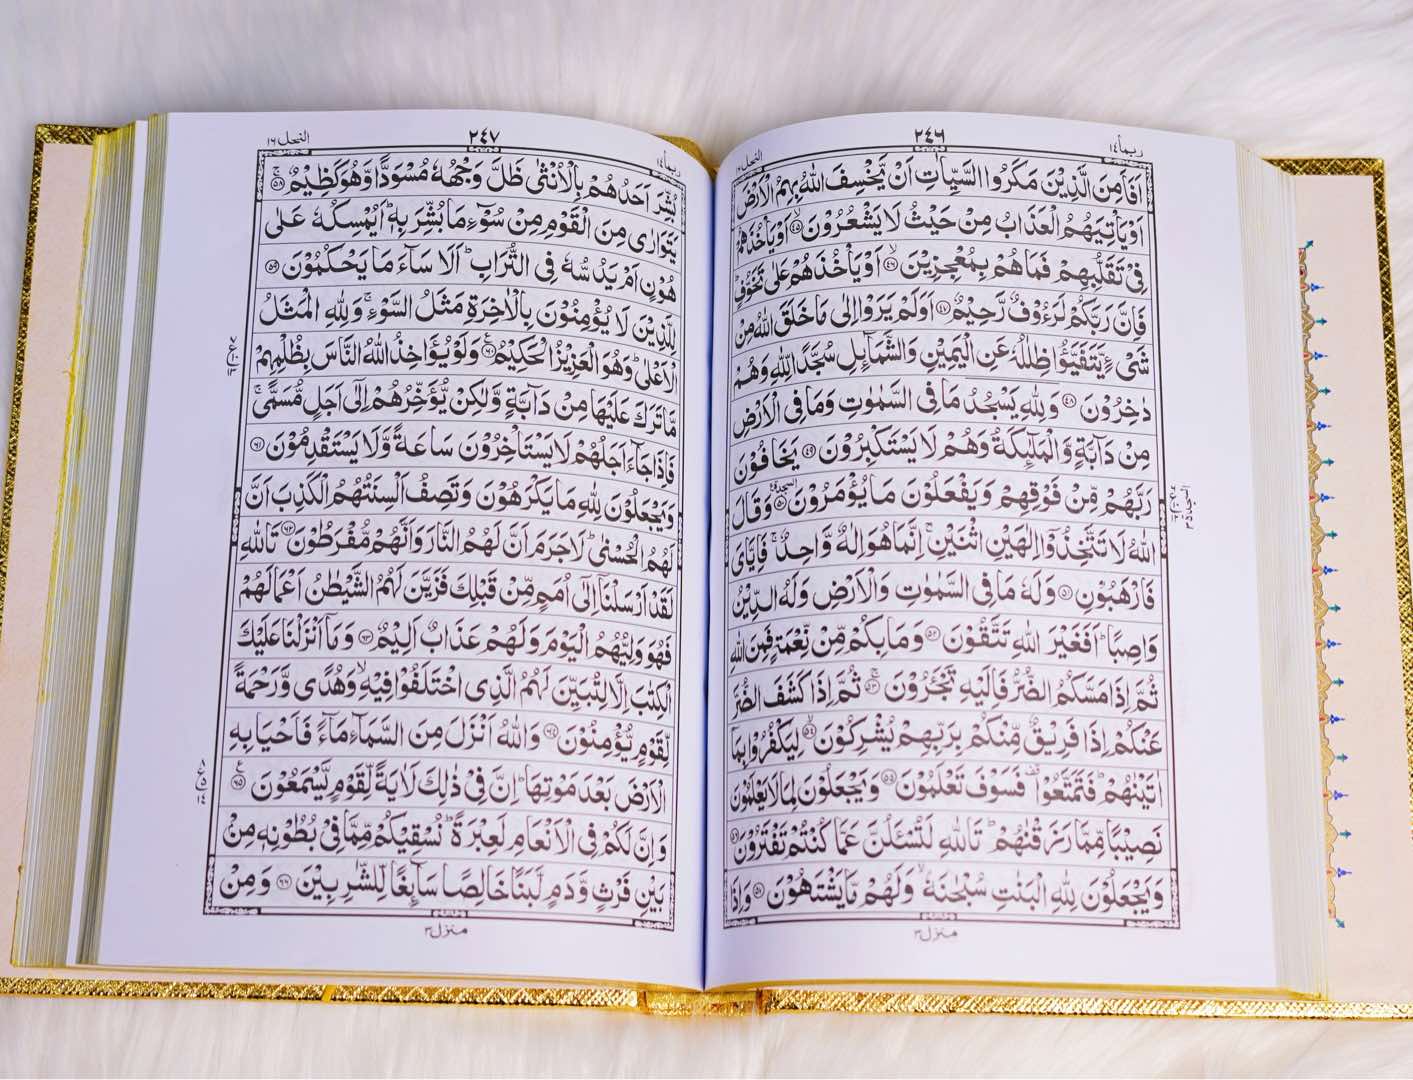 ربما ١٤
٢٤٦
النحل ١٦
اَفَاَمِنَ الَّذِيْنَ مَكَرُوا السَّيِّاٰتِ اَنْ يَّخْسِفَ اللّٰهُ بِهِمُ الْاَرْضَ
اَوْ يَاْتِيَهُمُ الْعَذَابُ مِنْ حَيْثُ لَا يَشْعُرُوْنَ ۙ﴿۴۵﴾ اَوْ يَاْخُذَهُمْ
فِيْ تَقَلُّبِهِمْ فَمَا هُمْ بِمُعْجِزِيْنَ ۙ﴿۴۶﴾ اَوْ يَاْخُذَهُمْ عَلٰى تَخَوُّفٍ ؕ
فَاِنَّ رَبَّكُمْ لَرَءُوْفٌ رَّحِيْمٌ ﴿۴۷﴾ اَوَلَمْ يَرَوْا اِلٰى مَا خَلَقَ اللّٰهُ مِنْ
شَيْءٍ يَّتَفَيَّؤُا ظِلٰلُهٗ عَنِ الْيَمِيْنِ وَالشَّمَآئِلِ سُجَّدًا لِّلّٰهِ وَهُمْ
دٰخِرُوْنَ ﴿۴۸﴾ وَلِلّٰهِ يَسْجُدُ مَا فِي السَّمٰوٰتِ وَمَا فِي الْاَرْضِ
مِنْ دَآبَّةٍ وَّالْمَلٰٓئِكَةُ وَهُمْ لَا يَسْتَكْبِرُوْنَ ﴿۴۹﴾ يَخَافُوْنَ
رَبَّهُمْ مِّنْ فَوْقِهِمْ وَيَفْعَلُوْنَ مَا يُؤْمَرُوْنَ ﴿۵۰﴾ وَقَالَ
اللّٰهُ لَا تَتَّخِذُوْۤا اِلٰهَيْنِ اثْنَيْنِ ۚ اِنَّمَا هُوَ اِلٰهٌ وَّاحِدٌ ۚ فَاِيَّايَ
فَارْهَبُوْنِ ﴿۵۱﴾ وَلَهٗ مَا فِي السَّمٰوٰتِ وَالْاَرْضِ وَلَهُ الدِّيْنُ
وَاصِبًا ؕ اَفَغَيْرَ اللّٰهِ تَتَّقُوْنَ ﴿۵۲﴾ وَمَا بِكُمْ مِّنْ نِّعْمَةٍ فَمِنَ اللّٰهِ
ثُمَّ اِذَا مَسَّكُمُ الضُّرُّ فَاِلَيْهِ تَجْـَٔرُوْنَ ۚ﴿۵۳﴾ ثُمَّ اِذَا كَشَفَ الضُّرَّ
عَنْكُمْ اِذَا فَرِيْقٌ مِّنْكُمْ بِرَبِّهِمْ يُشْرِكُوْنَ ۙ﴿۵۴﴾ لِيَكْفُرُوْا بِمَاۤ
اٰتَيْنٰهُمْ ؕ فَتَمَتَّعُوْا ۟ فَسَوْفَ تَعْلَمُوْنَ ﴿۵۵﴾ وَيَجْعَلُوْنَ لِمَا لَا يَعْلَمُوْنَ
نَصِيْبًا مِّمَّا رَزَقْنٰهُمْ ؕ تَاللّٰهِ لَتُسْـَٔلُنَّ عَمَّا كُنْتُمْ تَفْتَرُوْنَ ﴿۵۶﴾
وَيَجْعَلُوْنَ لِلّٰهِ الْبَنٰتِ سُبْحٰنَهٗ ۙ وَلَهُمْ مَّا يَشْتَهُوْنَ ﴿۵۷﴾ وَاِذَا
منزل ٣
ربما ١٤
٢٤٧
النحل ١٦
بُشِّرَ اَحَدُهُمْ بِالْاُنْثٰى ظَلَّ وَجْهُهٗ مُسْوَدًّا وَّهُوَ كَظِيْمٌ ۚ﴿۵۸﴾
يَتَوَارٰى مِنَ الْقَوْمِ مِنْ سُوْٓءِ مَا بُشِّرَ بِهٖ ؕ اَيُمْسِكُهٗ عَلٰى
هُوْنٍ اَمْ يَدُسُّهٗ فِي التُّرَابِ ؕ اَلَا سَآءَ مَا يَحْكُمُوْنَ ﴿۵۹﴾
لِلَّذِيْنَ لَا يُؤْمِنُوْنَ بِالْاٰخِرَةِ مَثَلُ السَّوْءِ ۚ وَلِلّٰهِ الْمَثَلُ
الْاَعْلٰى ؕ وَهُوَ الْعَزِيْزُ الْحَكِيْمُ ﴿۶۰﴾ وَلَوْ يُؤَاخِذُ اللّٰهُ النَّاسَ بِظُلْمِهِمْ
مَّا تَرَكَ عَلَيْهَا مِنْ دَآبَّةٍ وَّلٰكِنْ يُّؤَخِّرُهُمْ اِلٰۤى اَجَلٍ مُّسَمًّى ۚ
فَاِذَا جَآءَ اَجَلُهُمْ لَا يَسْتَاْخِرُوْنَ سَاعَةً وَّلَا يَسْتَقْدِمُوْنَ ﴿۶۱﴾
وَيَجْعَلُوْنَ لِلّٰهِ مَا يَكْرَهُوْنَ وَتَصِفُ اَلْسِنَتُهُمُ الْكَذِبَ اَنَّ
لَهُمُ الْحُسْنٰى ؕ لَا جَرَمَ اَنَّ لَهُمُ النَّارَ وَاَنَّهُمْ مُّفْرَطُوْنَ ﴿۶۲﴾ تَاللّٰهِ
لَقَدْ اَرْسَلْنَاۤ اِلٰۤى اُمَمٍ مِّنْ قَبْلِكَ فَزَيَّنَ لَهُمُ الشَّيْطٰنُ اَعْمَالَهُمْ
فَهُوَ وَلِيُّهُمُ الْيَوْمَ وَلَهُمْ عَذَابٌ اَلِيْمٌ ﴿۶۳﴾ وَمَاۤ اَنْزَلْنَا عَلَيْكَ
الْكِتٰبَ اِلَّا لِتُبَيِّنَ لَهُمُ الَّذِي اخْتَلَفُوْا فِيْهِ ۙ وَهُدًى وَّرَحْمَةً
لِّقَوْمٍ يُّؤْمِنُوْنَ ﴿۶۴﴾ وَاللّٰهُ اَنْزَلَ مِنَ السَّمَآءِ مَآءً فَاَحْيَا بِهِ
الْاَرْضَ بَعْدَ مَوْتِهَا ؕ اِنَّ فِيْ ذٰلِكَ لَاٰيَةً لِّقَوْمٍ يَّسْمَعُوْنَ ﴿۶۵﴾
وَاِنَّ لَكُمْ فِي الْاَنْعَامِ لَعِبْرَةً ؕ نُسْقِيْكُمْ مِّمَّا فِيْ بُطُوْنِهٖ مِنْۢ
بَيْنِ فَرْثٍ وَّدَمٍ لَّبَنًا خَالِصًا سَآئِغًا لِّلشّٰرِبِيْنَ ﴿۶۶﴾ وَمِنْ
منزل ٣